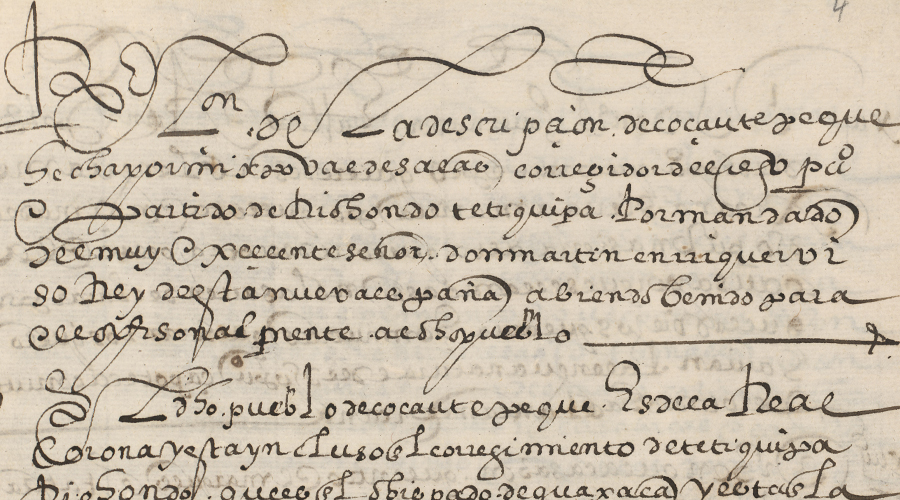 4
R^on de La descripçion de coçautepeque
hecha por mi xpoval de salas corregidor del dho
Partido de Riohondo tetiquipa Por mandado
del muy Excelente señor don martin enriquez vi
so Rey de esta nueva españa abiendo benido para
ello personalmente al dho pueblo
El dho pueblo de coçautepeque Es de la Real
Corona y esta yncluso el corregimiento de tetiquipa
Riohondo que es obispado de guaxaca y esta la